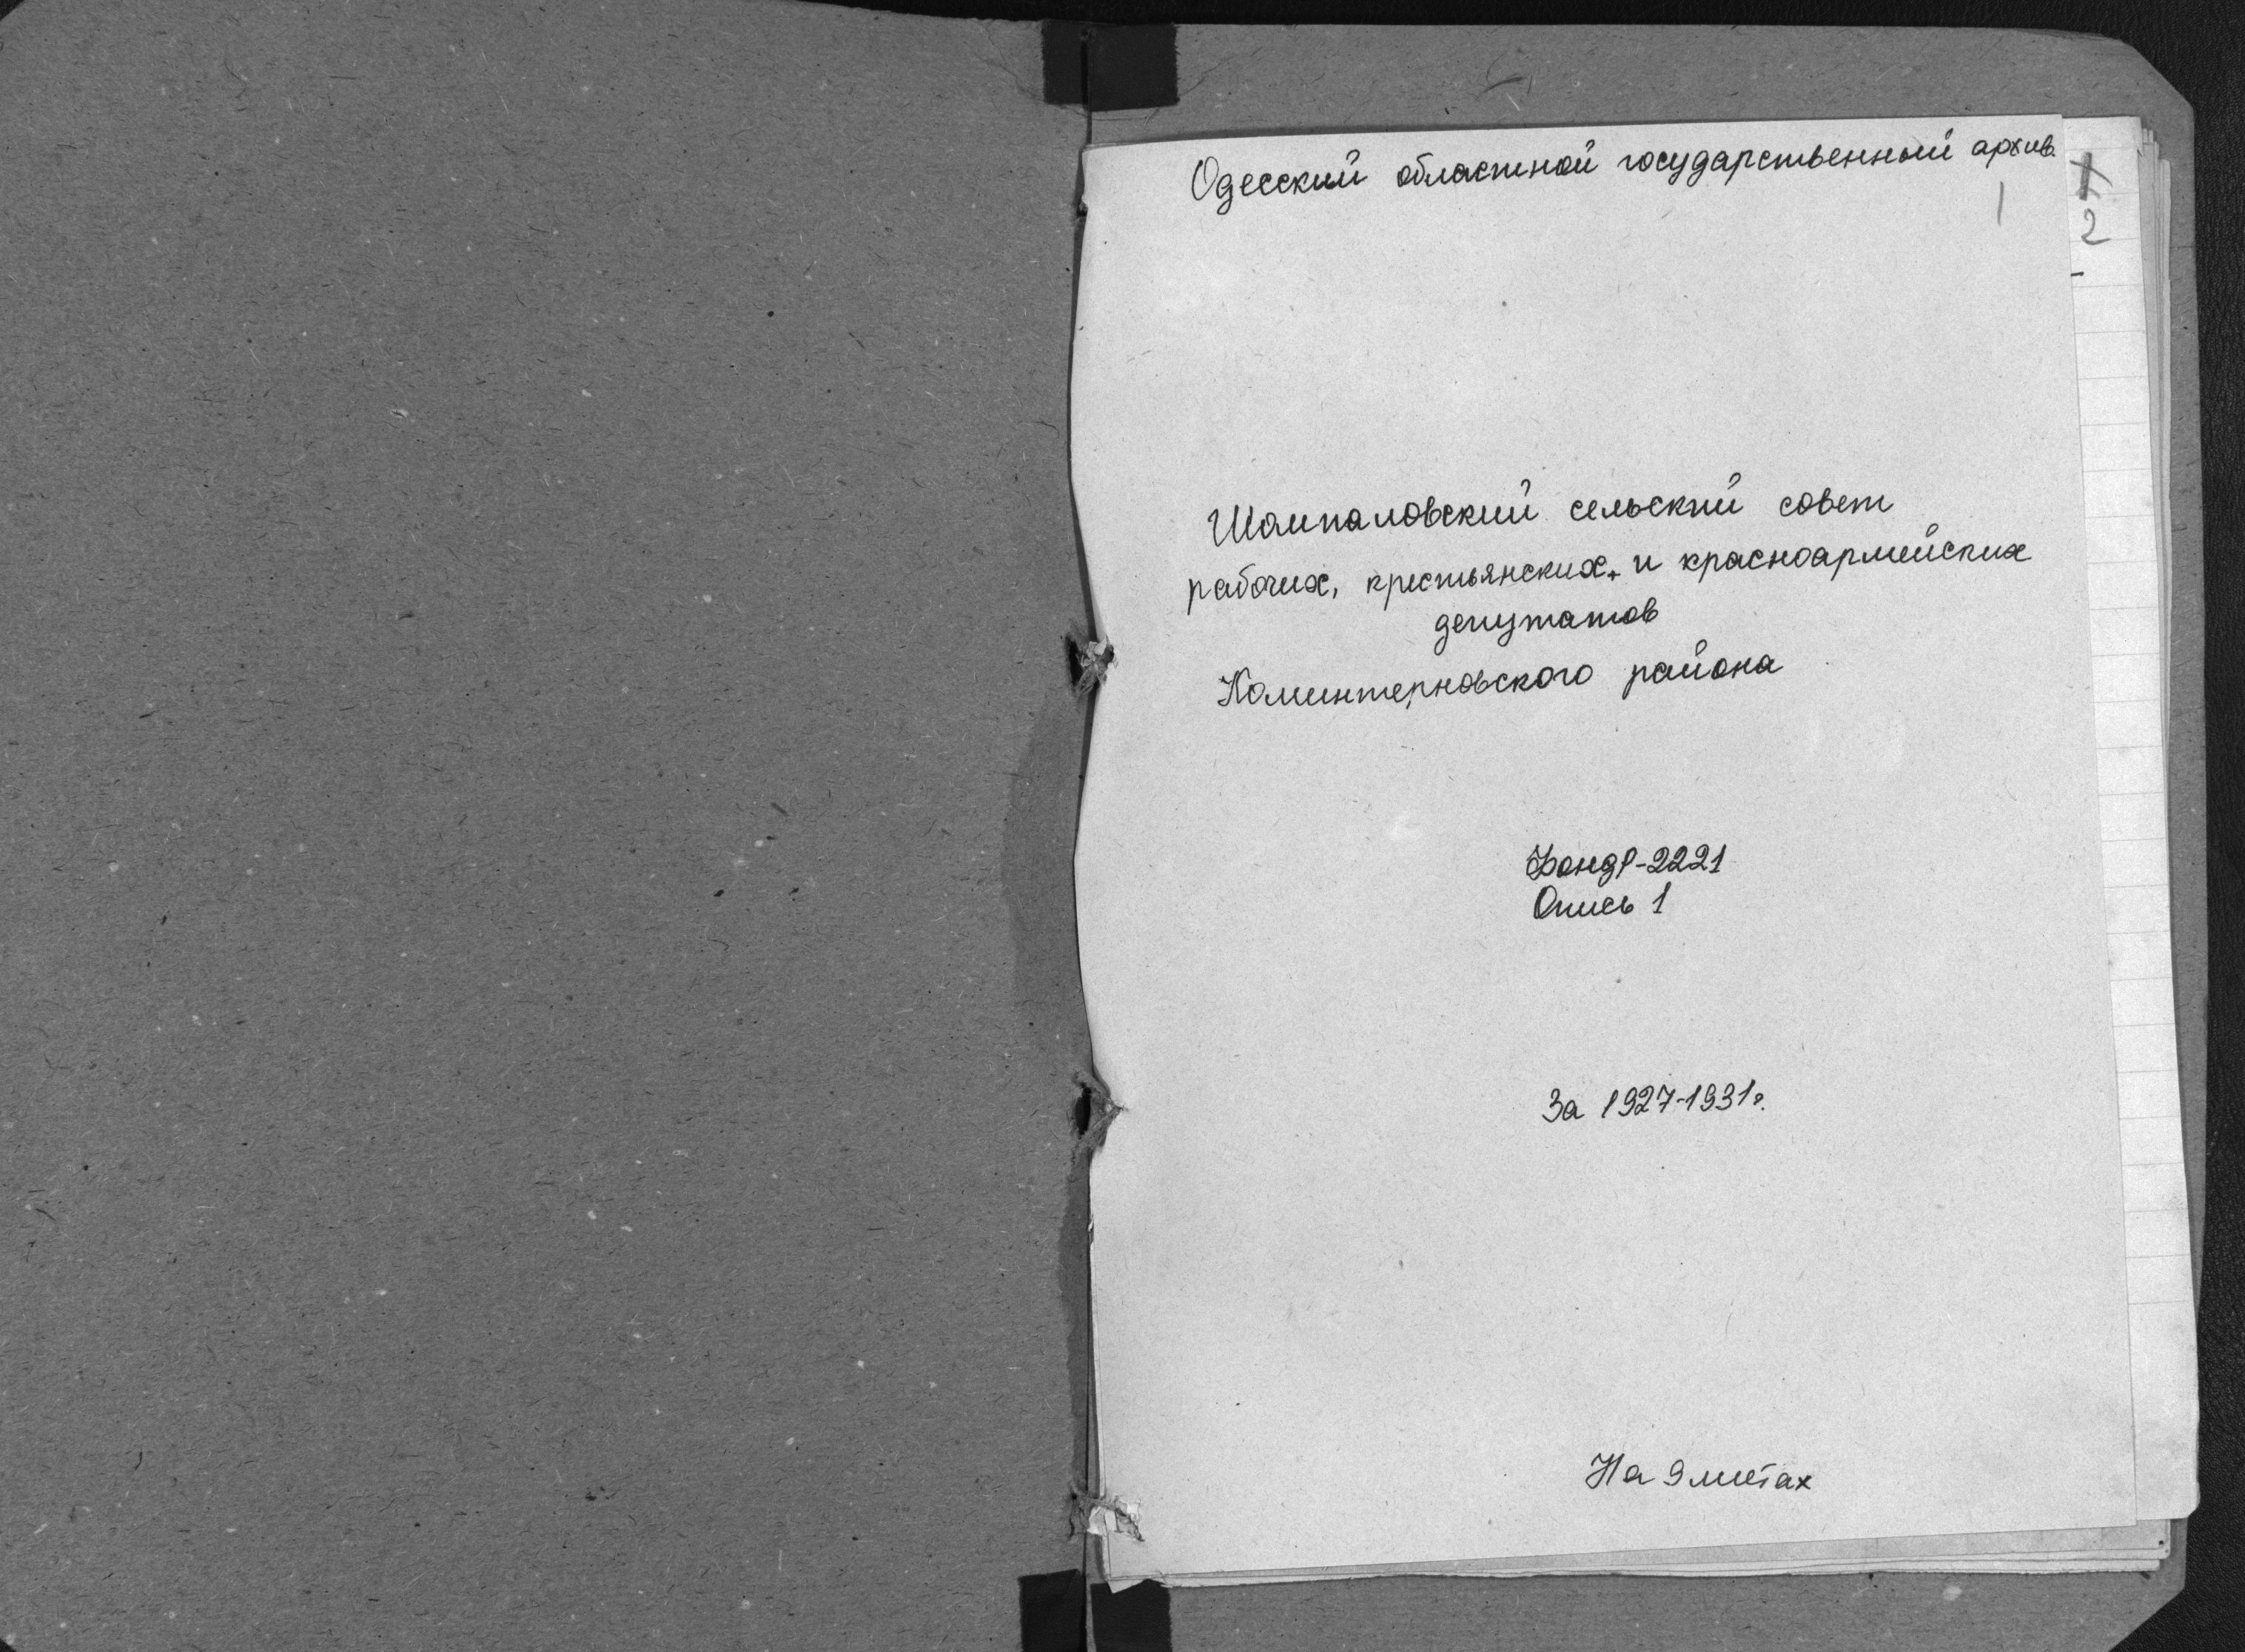 Одесский областной государственный архив.
1
2
Шомполовский сельский совет
рабочих, крестьянских, и красноармейских
депутатов
Коминтерновского района
Фонд Р-2221
Опись 1
За 1927-1931г.
На 9 листах